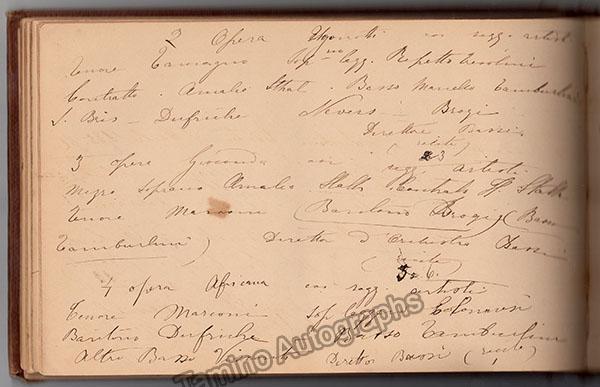 2 Opera Ugonotti con segg. artisti
Tenore Tamagno Sop.no legg. Repetto
Contralto. Amalia Stahl. Basso Marcello Tamburlini
S. Bris – Dufriche Nevers – Brogi
Direttore Bassi
(recite)
3 opera Gioconda coi segg. 3 artisti
Mezzo soprano Amalia Stahl Contralto Stahl
Tenore Marconi (Baritono Brogi) (Basso
Tamburlini) Direttor d'Orchestra Bassi
(recite)
4 opera Africana coi segg. 6. artisti
Tenore Marconi Sop legg.
Baritono Dufriche Basso Tamburlini
Altro Basso Direttor Bassi (recite)
Tamino Autographs